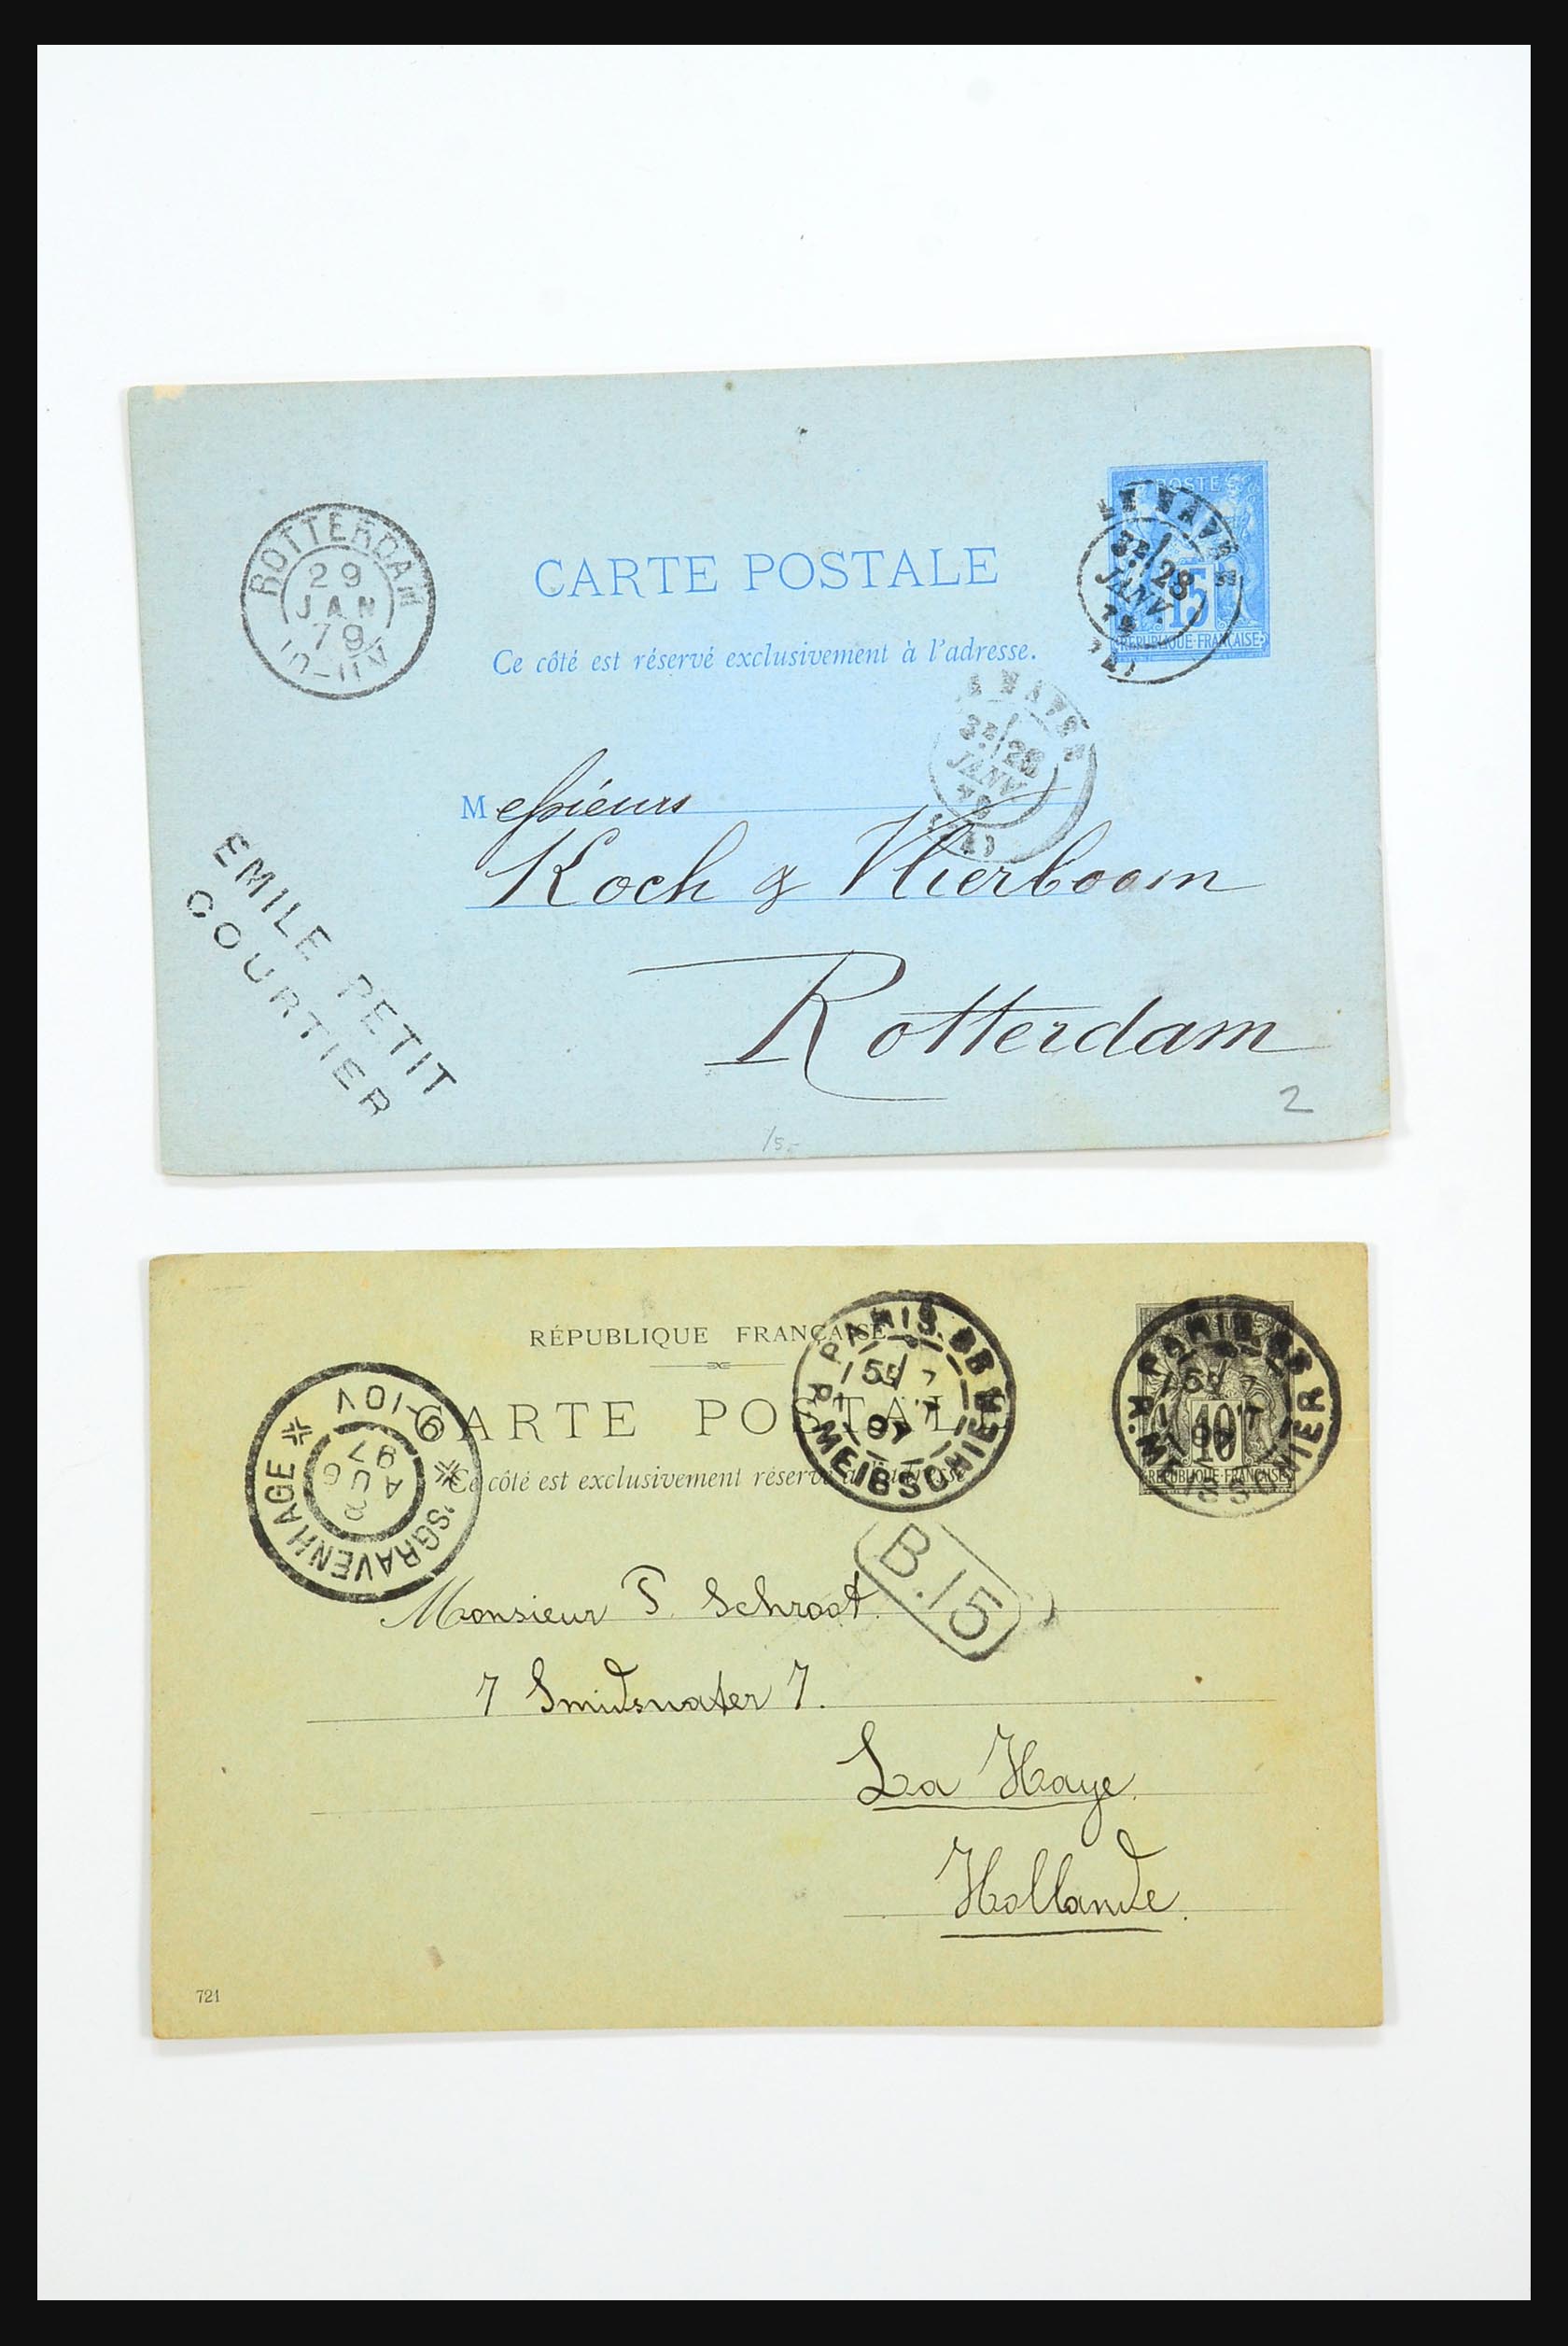 POSTES
15
RÉPUBLIQUE·FRANÇAISE
LE HAVRE
3E/28
JANV.
79
ROTTERDAM
29
JAN
79
10-11V
CARTE POSTALE
Ce côté est réservé exclusivement à l'adresse.
28
JANV
Messieurs
Koch & Vlierboom
Rotterdam
EMILE PETIT
COURTIER
2
15.-
RÉPUBLIQUE FRANÇAISE
CARTE POSTALE
Ce côté est exclusivement réservé à l'adresse
PARIS
97
R. MEISSONIER
PARIS
R. MEISSONIER
10
RÉPUBLIQUE·FRANÇAISE
'SGRAVENHAGE
8
AUG
97
9-10V
B.15
Monsieur P. Schroot.
7 Smidswater 7.
La Haye.
Hollande.
721